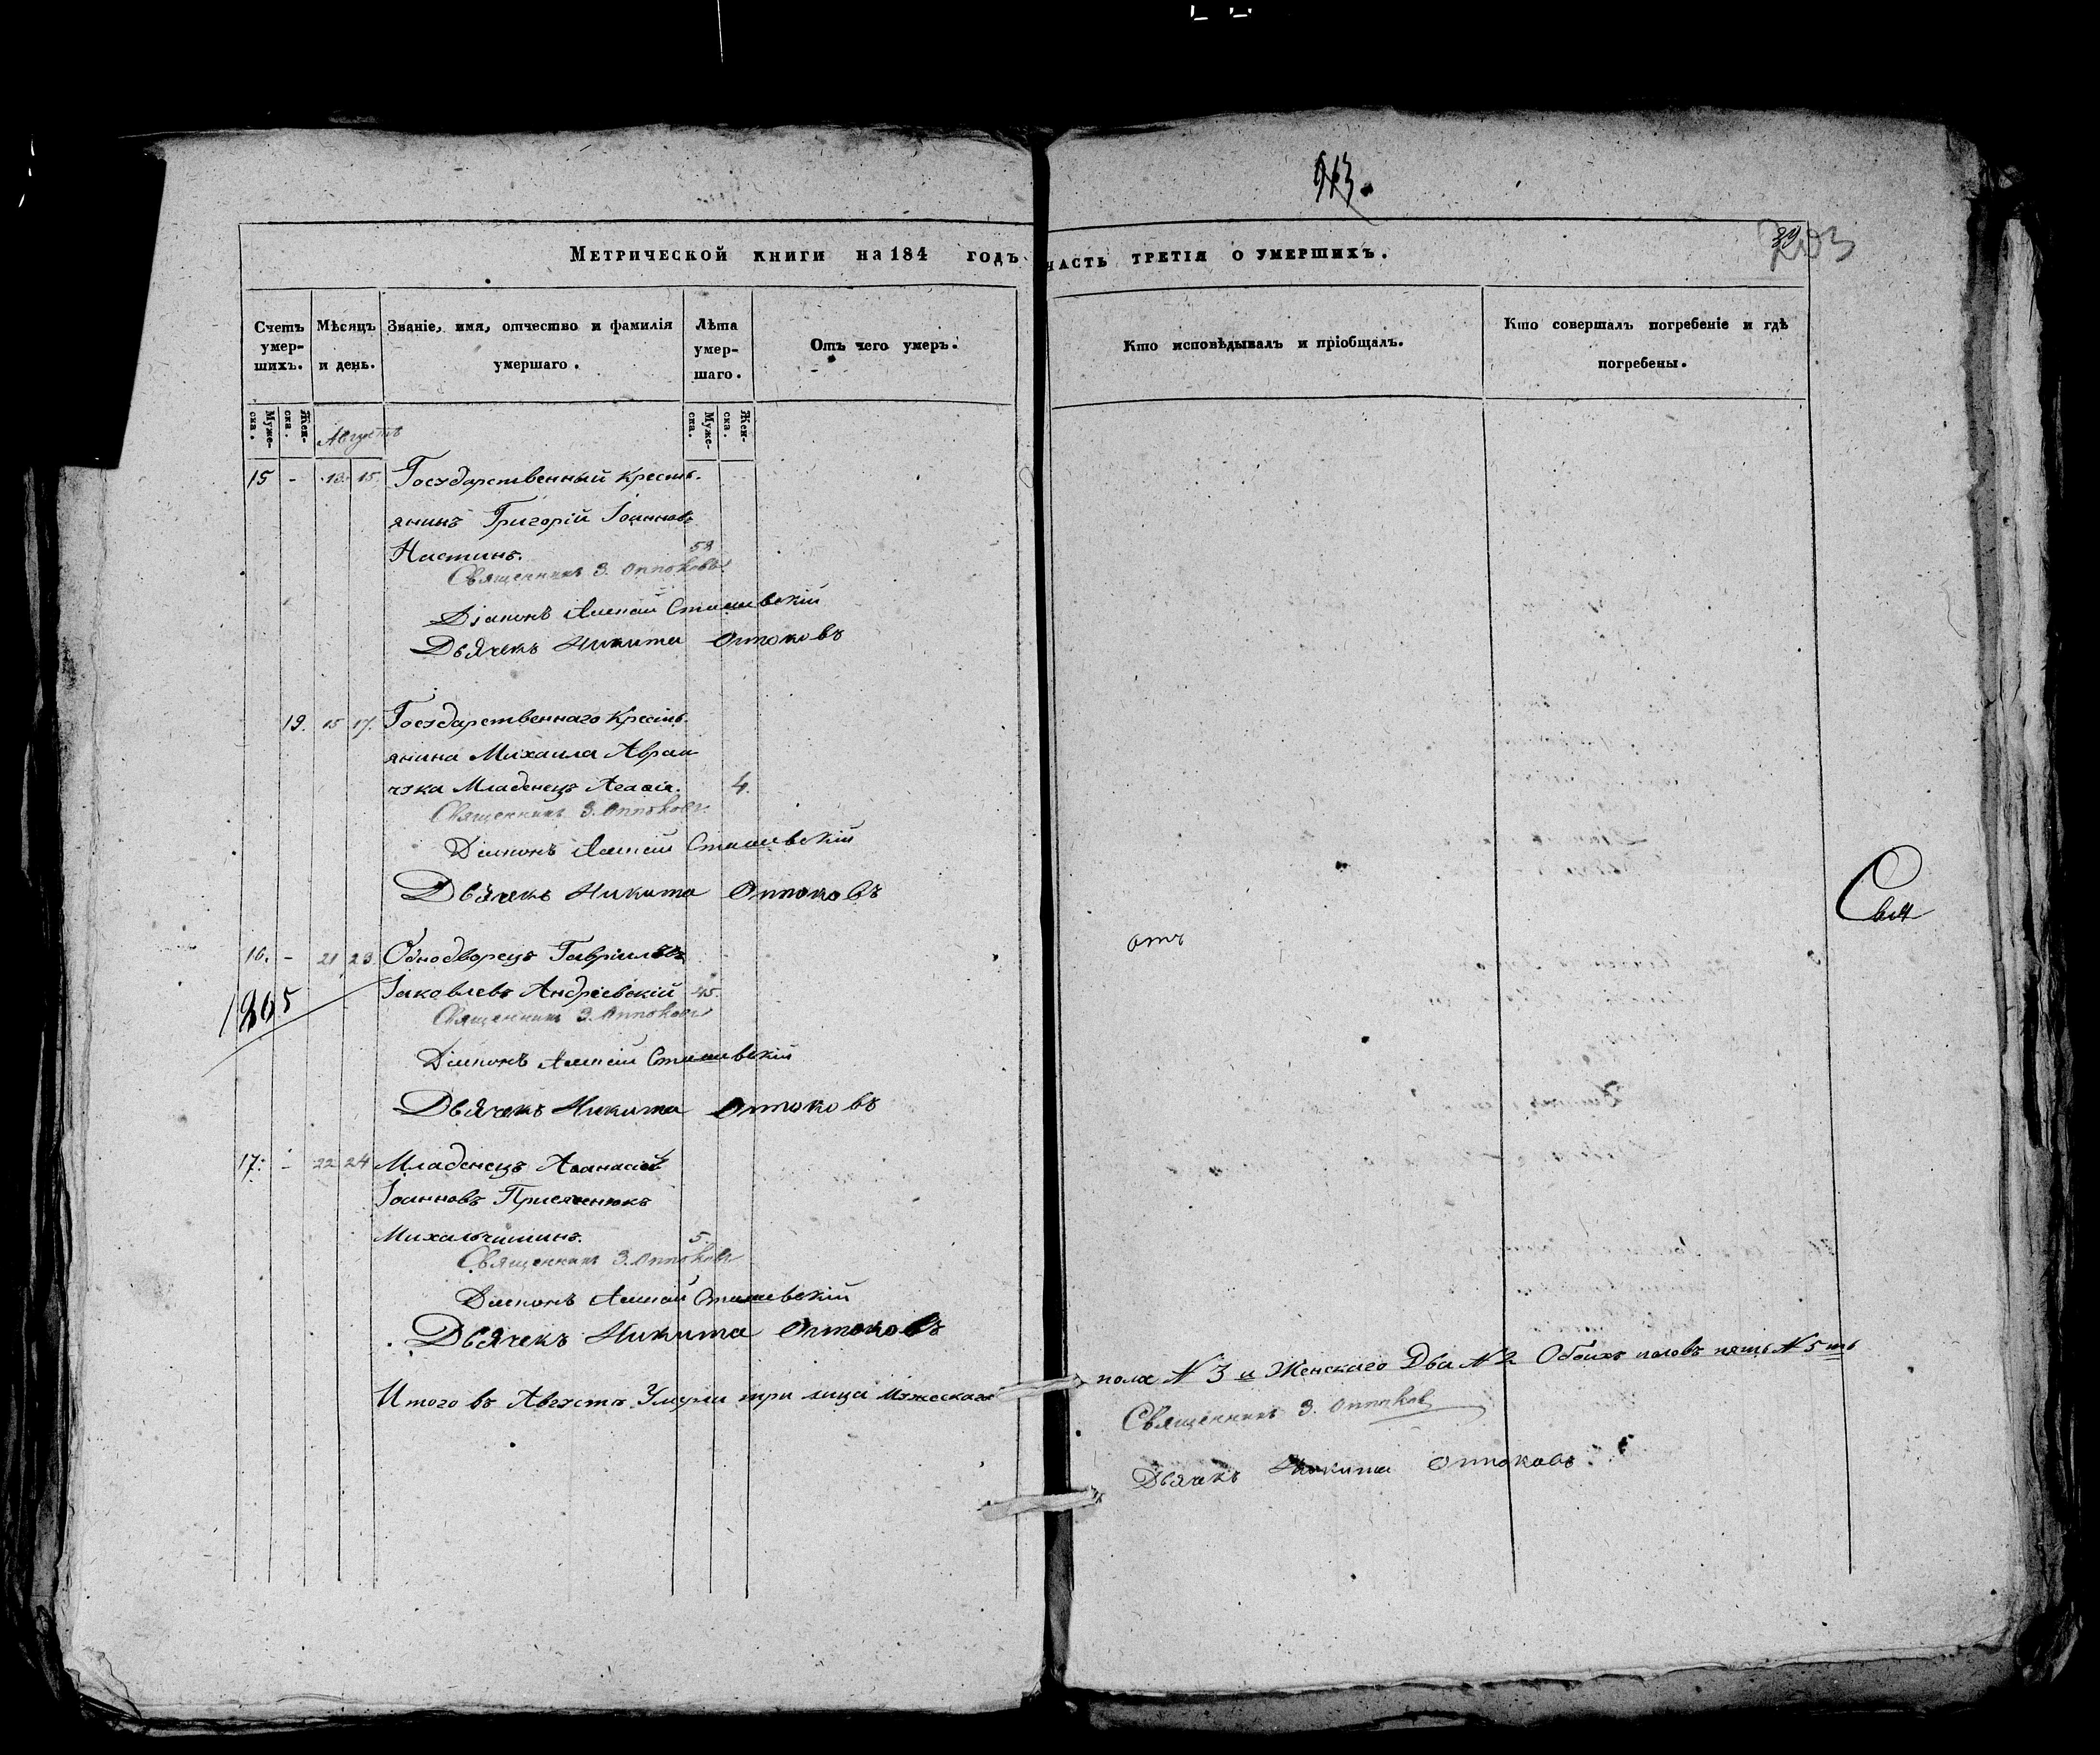 913.
203
39
Метрической книги на 184 годъ часть третія о умершихъ.
Счетъ умершихъ.
Мѣсяцъ и день.
Званіе, имя, отчество и фамилія умершаго.
Лѣта умершаго.
Отъ чего умеръ.
Кто исповѣдывалъ и пріобщалъ.
Кто совершалъ погребеніе и гдѣ погребены.
Муже-ска. Жен-ска. Августъ Муже-ска. Жен-ска.
15 - 13. 15. Государственный кресть-
янинъ Григорій Іоанновъ
Настинъ. 58
Священникъ З. Оппоковъ
Діаконъ Сташевскій
Дьячекъ Никита Оппоковъ
19. 15 17. Государственнаго Кресть-
янина Михаила Аврам
чука Младенецъ Агафія. 4.
Священникъ З. Оппоковъ
Діаконъ Сташевскій
Дьячекъ Никита Оппоковъ
16. - 21 23. Однодворецъ Гавріилъ
Іаковлевъ Андріевскій 45.
1805
Священникъ З. Оппоковъ
Діаконъ Сташевскій
Дьячекъ Никита Оппоковъ
17. - 22 24 Младенецъ Аѳанасій
Іоанновъ Присяженюкъ
Михальчишинъ. 5.
Священникъ З. Оппоковъ
Діаконъ Сташевскій
Дьячекъ Никита Оппоковъ
Итого въ Августѣ Умерли три лица мужескаго пола № 3 и Женскаго Два № 2 Обоихъ половъ пять № 5ть
Священникъ З. Оппоковъ
Дьячекъ Никита Оппоковъ
отъ
Свя